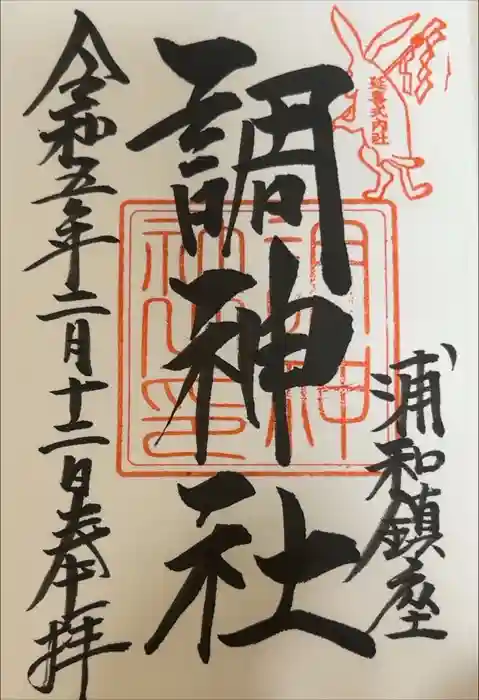 延喜式内社
浦和鎮座
調神社
令和五年二月十二日奉拝